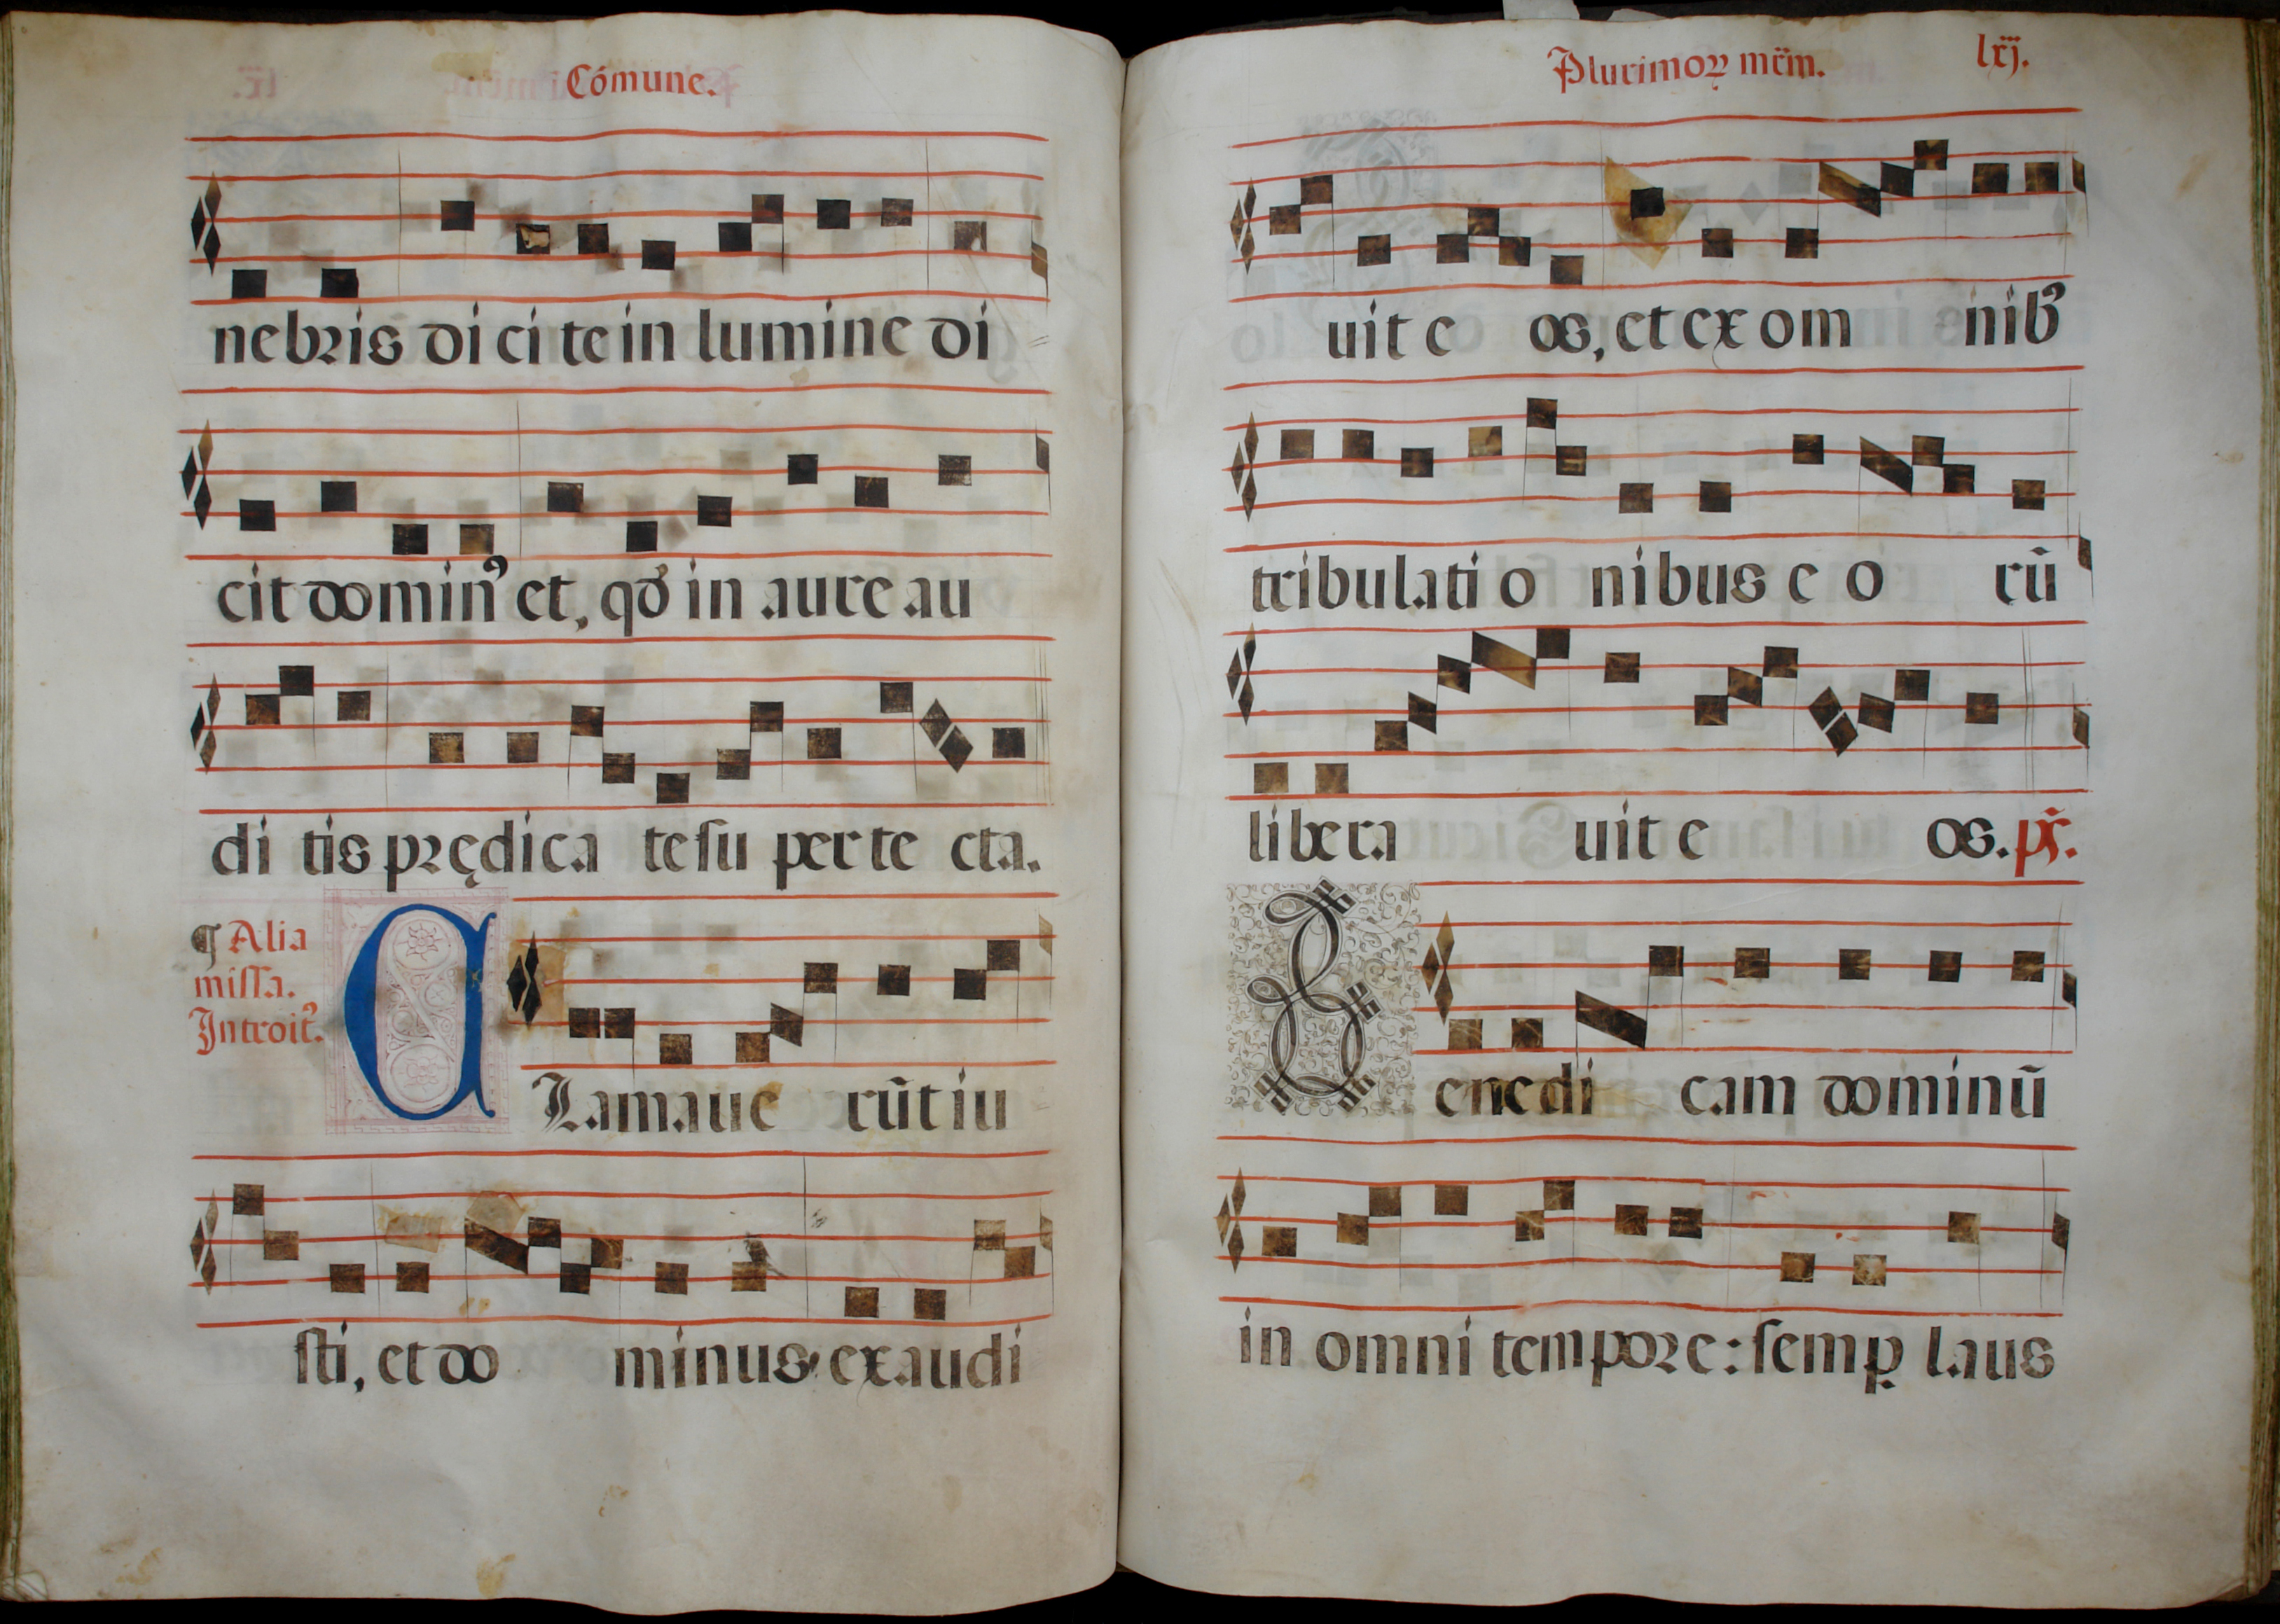 Cómune.
nebris di ci te in lumine di
cit domin⁹ et, qđ in aure au
di tis prędica te su per te cta.
¶ Alia
missa.
Introit⁹.
CLamaue rūt iu
sti, et do minus exaudi
Plurimoꝝ mr̄m. lxj.
uit e os, et ex om nib⁹
tribulati o nibus e o rū
libera uit e os. ps̄.
Benedi cam dominū
in omni tempore: semꝑ laus